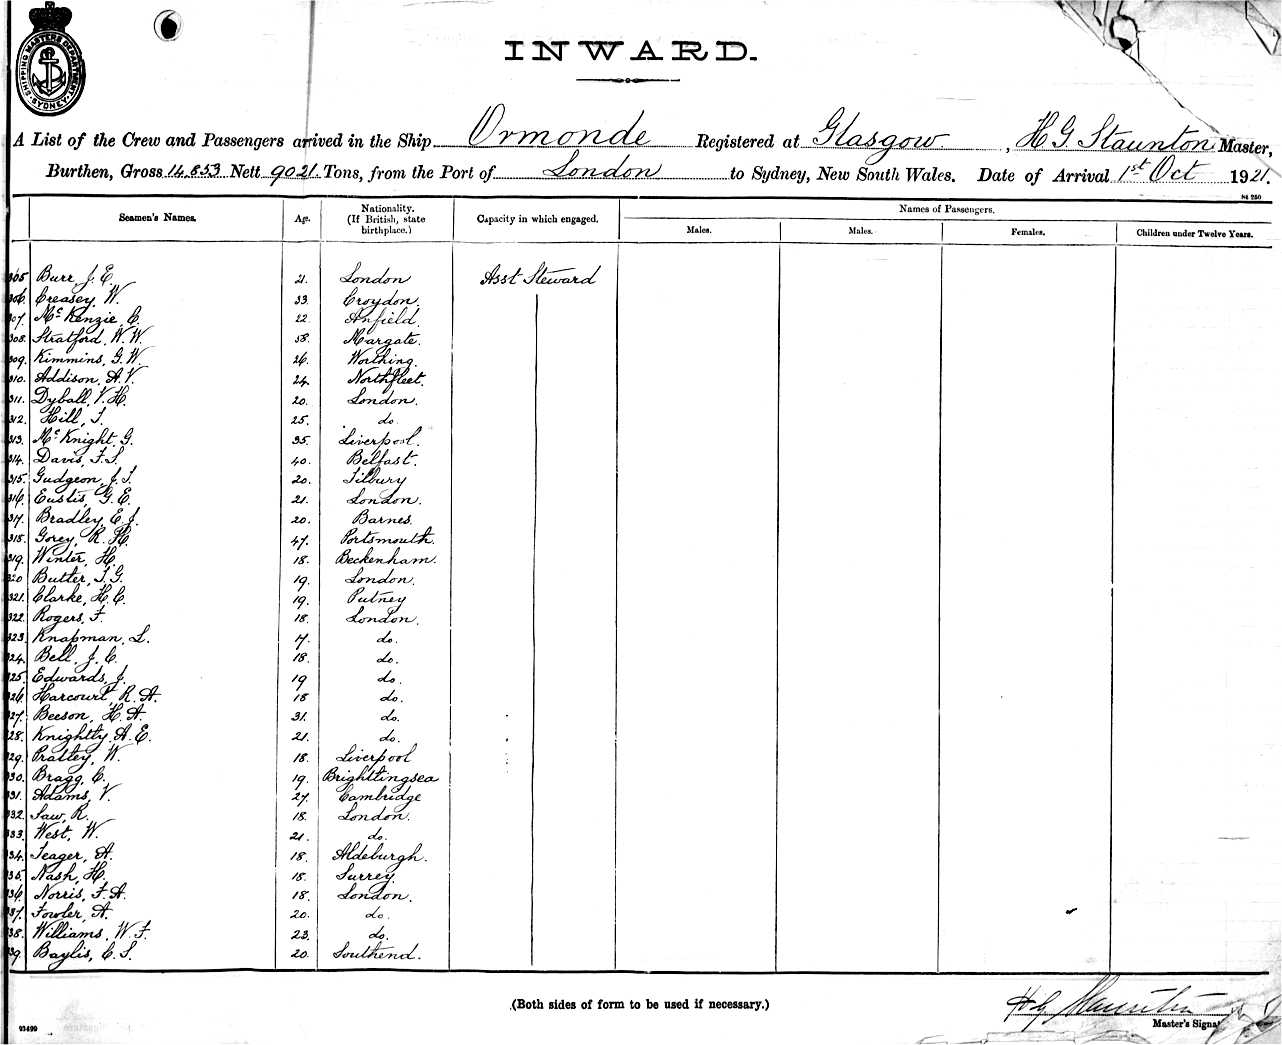 SHIPPING MASTERS DEPARTMENT SYDNEY
INWARD.
A List of the Crew and Passengers arrived in the Ship Ormonde Registered at Glasgow, H G Staunton Master,
Burthen, Gross 14,853 Nett 9021 Tons, from the Port of London to Sydney, New South Wales. Date of Arrival 1st Oct 1921.
St 250
Seamen's Names. Age. Nationality. (If British, state birthplace.) Capacity in which engaged. Names of Passengers.
Males. Males. Females. Children under Twelve Years.
305 Burr, J. E. 21. London Asst Steward
306. Creasey, W. 33. Croydon.
307. McKenzie, C. 22. Anfield.
308. Stratford, W. W. 58. Margate.
309. Kimmins, G. W. 26. Worthing.
310. Addison, A. V. 24. Northfleet.
311. Dyball, V. H. 20. London.
312. Hill, T. 25. do
313. McKnight, G. 35. Liverpool.
314. Davis, F. S. 40. Belfast.
315. Gudgeon, J. T. 20. Tilbury
316. Eustis, G. E. 21. London.
317. Bradley, E. J. 20. Barnes.
318. Gorey, R. H. 47. Portsmouth.
319. Winter, H. 18. Beckenham.
320 Butter, T. G. 19. London.
321. Clarke, H. C. 19. Putney
322. Rogers, F. 18. London.
323. Knapman, L. 17. do.
324. Bell, J. C. 18. do.
325. Edwards, J. 19 do.
326. Harcourt, R. A. 18 do.
327. Beeson, H. A. 31. do.
328. Knightly, A. E. 21. do.
329. Pratley, W. 18. Liverpool
330. Bragg, C. 19. Brightlingsea
331. Adams, V. 27. Cambridge
332. Saw, R. 18. London.
333. West, W. 21. do.
334. Teager, A. 18. Aldeburgh.
335. Nash, H. 18. Surrey.
336. Norris, F. A. 18. London.
337. Fowler, A. 20. do.
338. Williams, W. F. 23. do.
339. Baylis, C. S. 20. Southend.
(Both sides of form to be used if necessary.)
H G Staunton
Master's Signat
93499